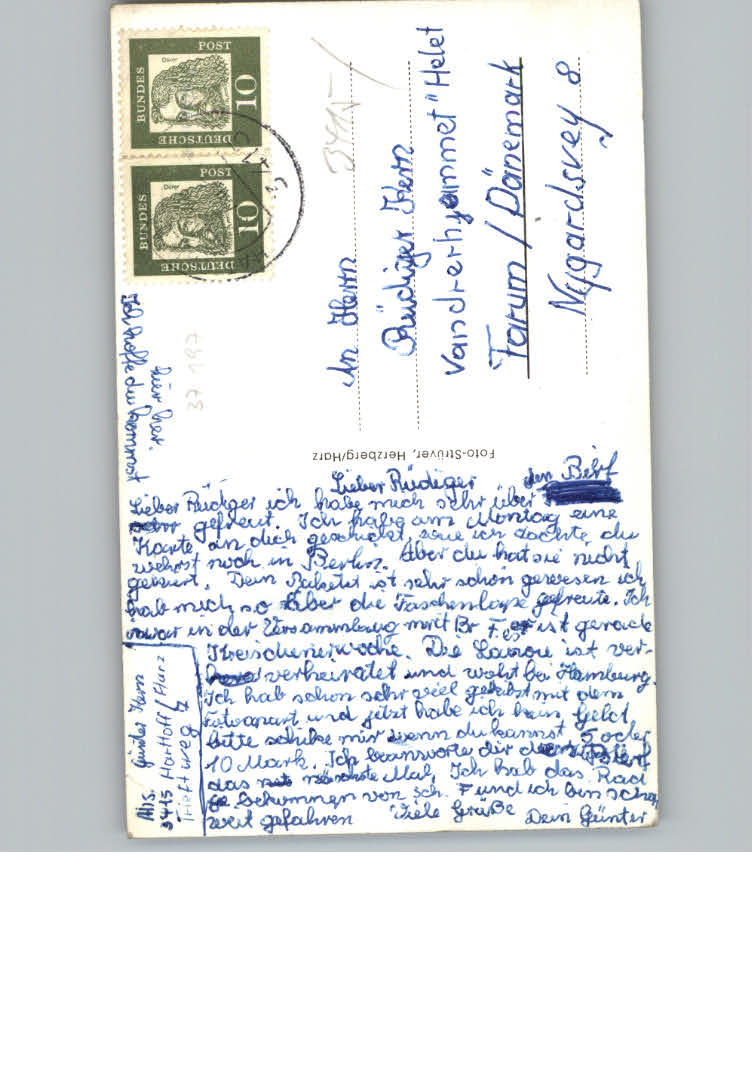 DEUTSCHE
BUNDES
POST
Dürer
10
DEUTSCHE
BUNDES
POST
Dürer
10
3415
37 197
An Herrn
Rüdiger Hern
Vandrerhjammet "Helet
Tarum / Dänemark
Nygardsvey 8
Foto-Strüver, Herzberg/Harz
Ich hoffe du kommst
hier her.
Lieber Rüdiger
Lieber Rüdiger ich habe mich sehr über den Birf
gefreut. Ich habe am Montag eine
Karte an dich geschickt, weil ich dachte, du
wehrst noch in Berlin. Aber du hat sie nicht
gekriert. Dein Paket ist sehr schön gewesen ich
hab mich so über die Taschenlape gefreute. Ich
war in der Versammlung mit Br F. es ist gerade
Kreisdienerwoche. Die ist ver-
verheiratet und woht bei Hamburg.
Ich hab schon sehr viel geknibst mit dem
Fotoapart und jitzt habe ich kein Geld
bitte schike mir wenn du kannst 5 oder
10 Mark. Ich beanworte dir den Birf
das nächste Mal. Ich hab das Rad
bekommen von Sch. F und ich bin schon
weit gefahren Viele Grüße Dein Günter
Abs. Günter Hern
3415 Hattorf / Harz
Trieftweg 7